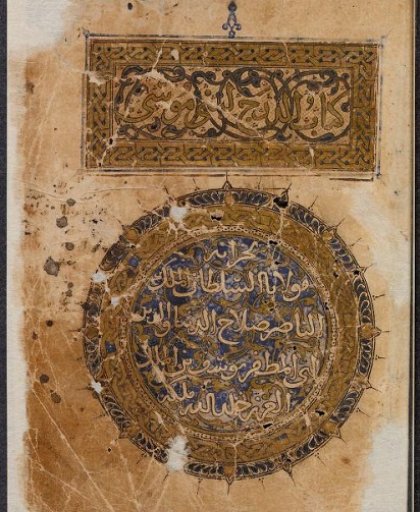 كتاب
لخزانة
مولانا السلطان الملك
الناصر صلاح الدنيا والدين
ابي المظفر يوسف بن الملك
العزيز خلد الله ملكه